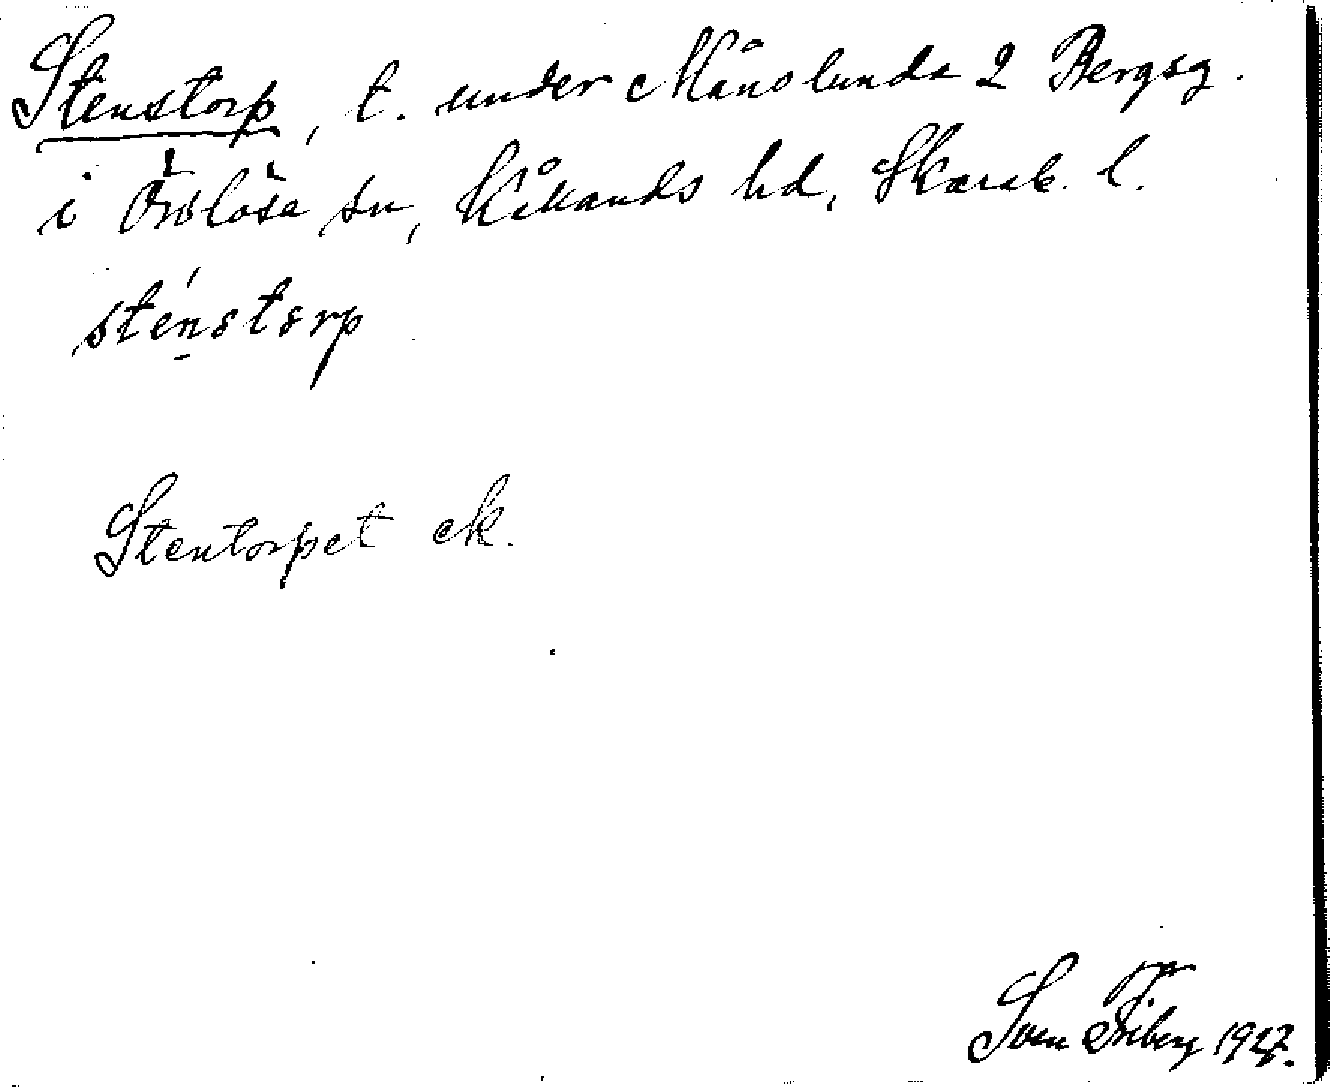 Stenstorp, t. under Månslunda 2 Bergsg.
i Örslösa sn, Kållands hd, Skarab. l.
sténstorp
Stentorpet ek.
Sven Friberg 1927.